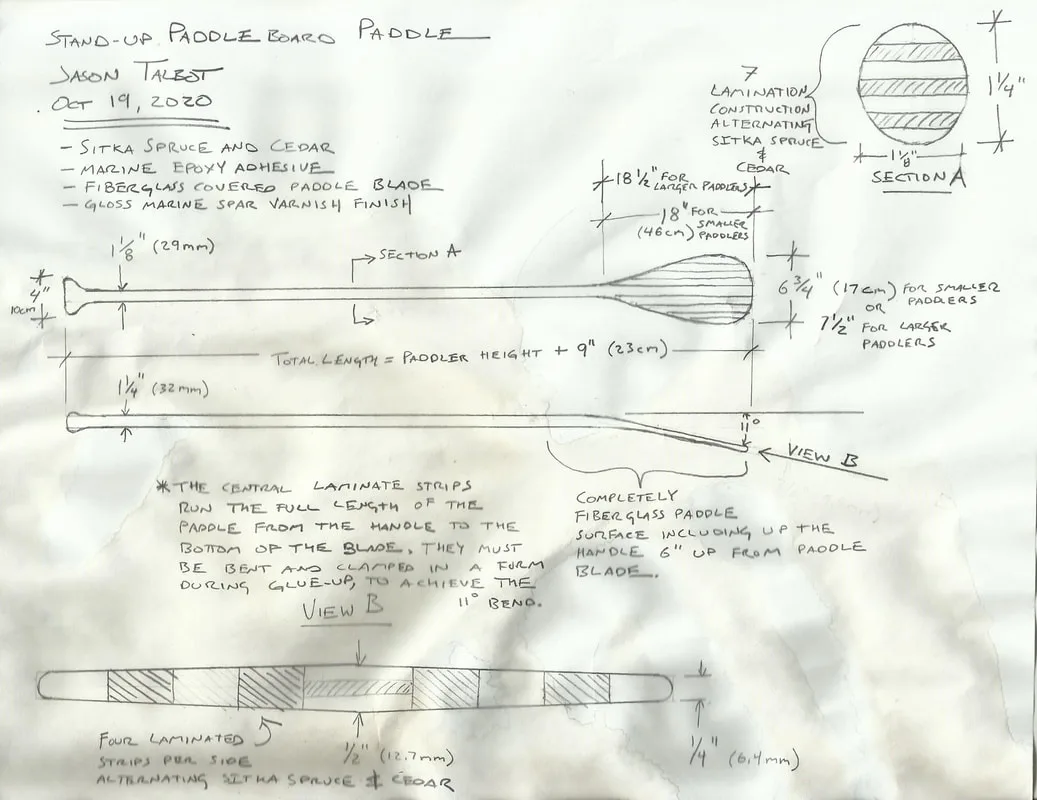 STAND-UP PADDLE BOARD PADDLE
JASON TALBOT
OCT 19, 2020
- SITKA SPRUCE AND CEDAR
- MARINE EPOXY ADHESIVE
- FIBERGLASS COVERED PADDLE BLADE
- GLOSS MARINE SPAR VARNISH FINISH
7
LAMINATION
CONSTRUCTION
ALTERNATING
SITKA SPRUCE
&
CEDAR
1 1/4"
1 1/8"
SECTION A
18 1/2" FOR
LARGER PADDLERS
18" FOR
SMALLER
(46cm) PADDLERS
1 1/8" (29mm)
SECTION A
4"
10cm
6 3/4" (17cm) FOR SMALLER
PADDLERS
OR
7 1/2" FOR LARGER
PADDLERS
TOTAL LENGTH = PADDLER HEIGHT + 9" (23cm)
1 1/4" (32mm)
11°
VIEW B
* THE CENTRAL LAMINATE STRIPS
RUN THE FULL LENGTH OF THE
PADDLE FROM THE HANDLE TO THE
BOTTOM OF THE BLADE. THEY MUST
BE BENT AND CLAMPED IN A FORM
DURING GLUE-UP, TO ACHIEVE THE
11° BEND.
COMPLETELY
FIBERGLASS PADDLE
SURFACE INCLUDING UP THE
HANDLE 6" UP FROM PADDLE
BLADE.
VIEW B
FOUR LAMINATED
STRIPS PER SIDE
ALTERNATING SITKA SPRUCE & CEDAR
1/2" (12.7mm)
1/4" (6.4mm)